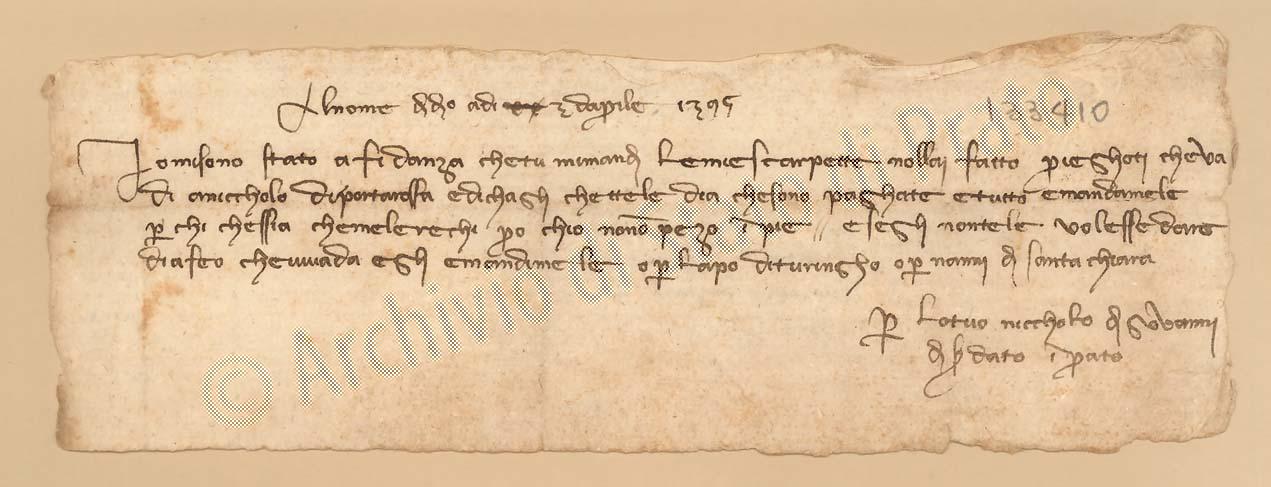 Al nome di Dio adi 3 d'aprile 1395
133410
Io mi sono stato a fidanza che tu mi mandi le mie scarpette no ll'ai fatto priegoti che va
di a Niccholo di Portarossa e dichagli che tte le dia che sono paghate e tutto e mandamele
per chi chessia che me le rechi però ch'io non ò pezo i' pie e s'egli non te le volesse dare
di a Feo che vi vada egli e mandimele o per Lapo di Turingho o per Nanni di Santa Chiara
Per lo tuo Niccholo di Govanni
di dato i Prato
© Archivio di Stato di Prato